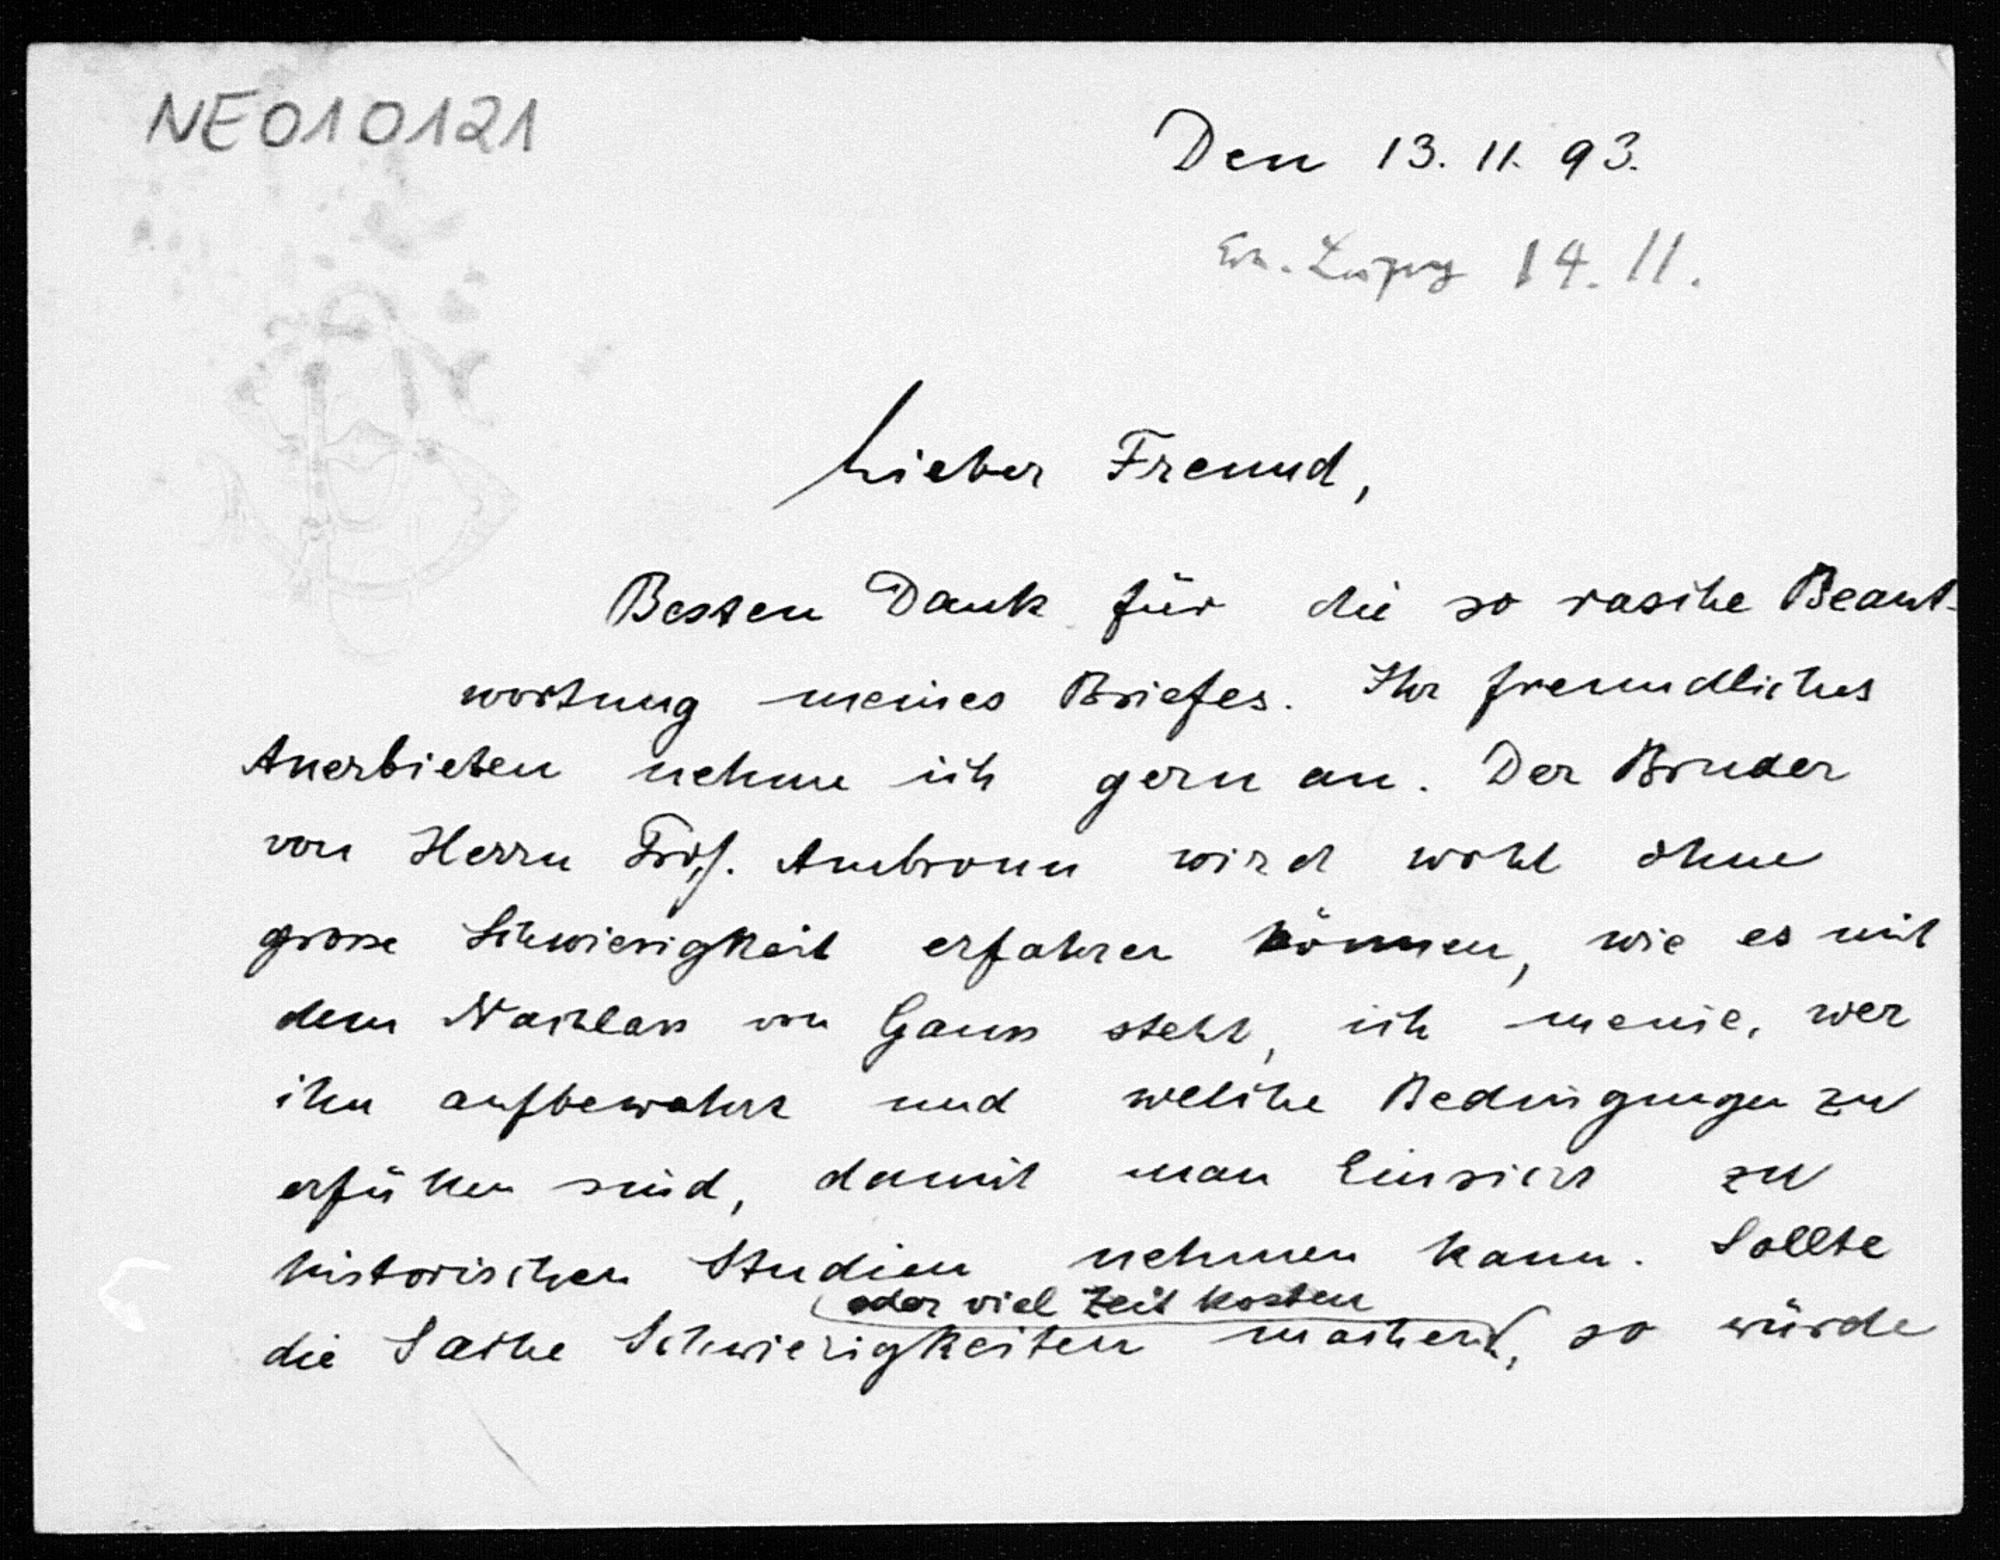 NE010121
Den 13. 11. 93.
14. 11.
Lieber Freund,
Besten Dank für die so rasche Beant-
wortung meines Briefes. Ihr freundliches
Anerbieten nehme ich gern an. Der Bruder
von Herrn Prof. Ambronn wird wohl ohne
grosse Schwierigkeit erfahren können, wie es mit
dem Nachlass von Gauss steht, ich meine, wer
ihn aufbewahrt und welche Bedingungen zu
erfüllen sind, damit man Einsicht zu
historischen Studien nehmen kann. Sollte
oder viel Zeit kosten
die Sache Schwierigkeiten machen, so würde